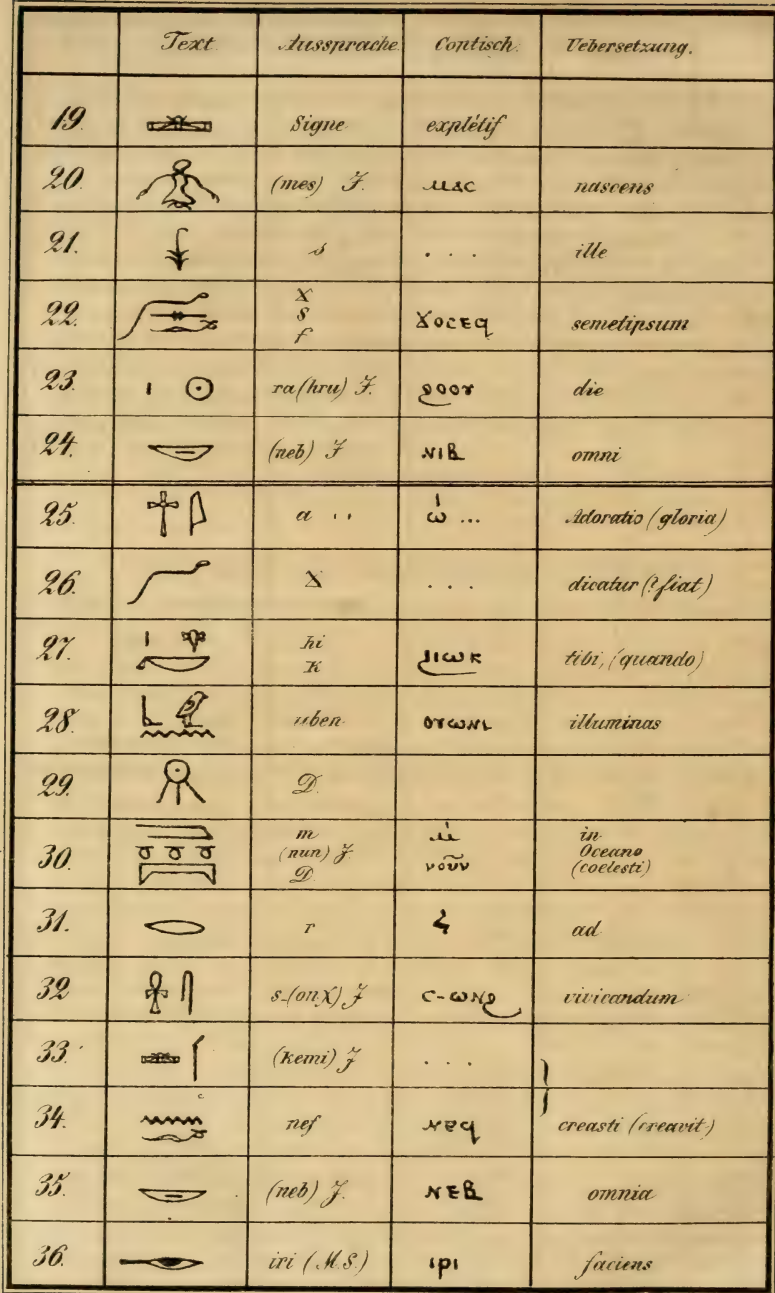 Text. Aussprache. Coptisch. Uebersetzung.
19. Signe explétif
20. (mes) J. ⲙⲁⲥ nascens
21. s . . . ille
22. X ϫⲟⲥⲉϥ semetipsum
S
f
23. ra (hru) J. ϩⲟⲟⲩ die
24. (neb) J ⲛⲓⲃ omni
25. a .. ⲱ̇ ... Adoratio (gloria)
26. X . . . dicatur (? fiat)
27. hi tibi, (quando)
K
28. uben ⲟⲩⲱⲛⲓ illuminas
29. D.
30. m ⲙ̇ in
(nun) J ⲛⲟⲩⲛ Oceano
D. (coelesti)
31. r ad
32 s-(onX) J ⲥ-ⲱⲛϩ vivicandum
33. (Kemi) J . . .
34. nef ⲛⲉϥ creasti (creavit)
35. (neb) J. ⲛⲉⲃ omnia
36. iri (M.S.) ⲓⲣⲓ faciens